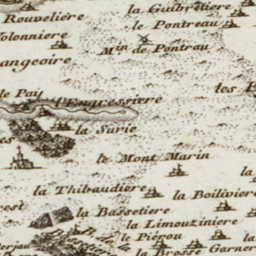 la Guibretiere
Rouveliere
le Pontreau
olonniere
Min de Pontrau
angeoire
les
le Pai
l'Engressiere
la Surie
es
le Mont Marin
la
la Thibaudiere
la Boiliviere
rest
la Bassetiere
la Limouziniere
le Piérou
la Brosse Garner